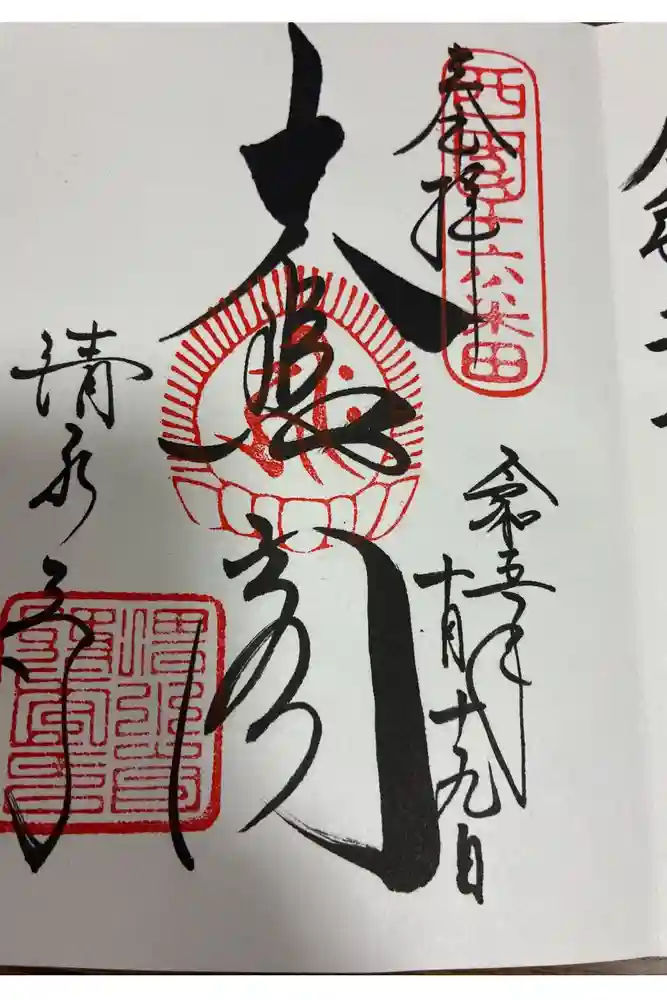 西國十六番
奉拝
令和五年
十月十九日
大悲閣
清水寺